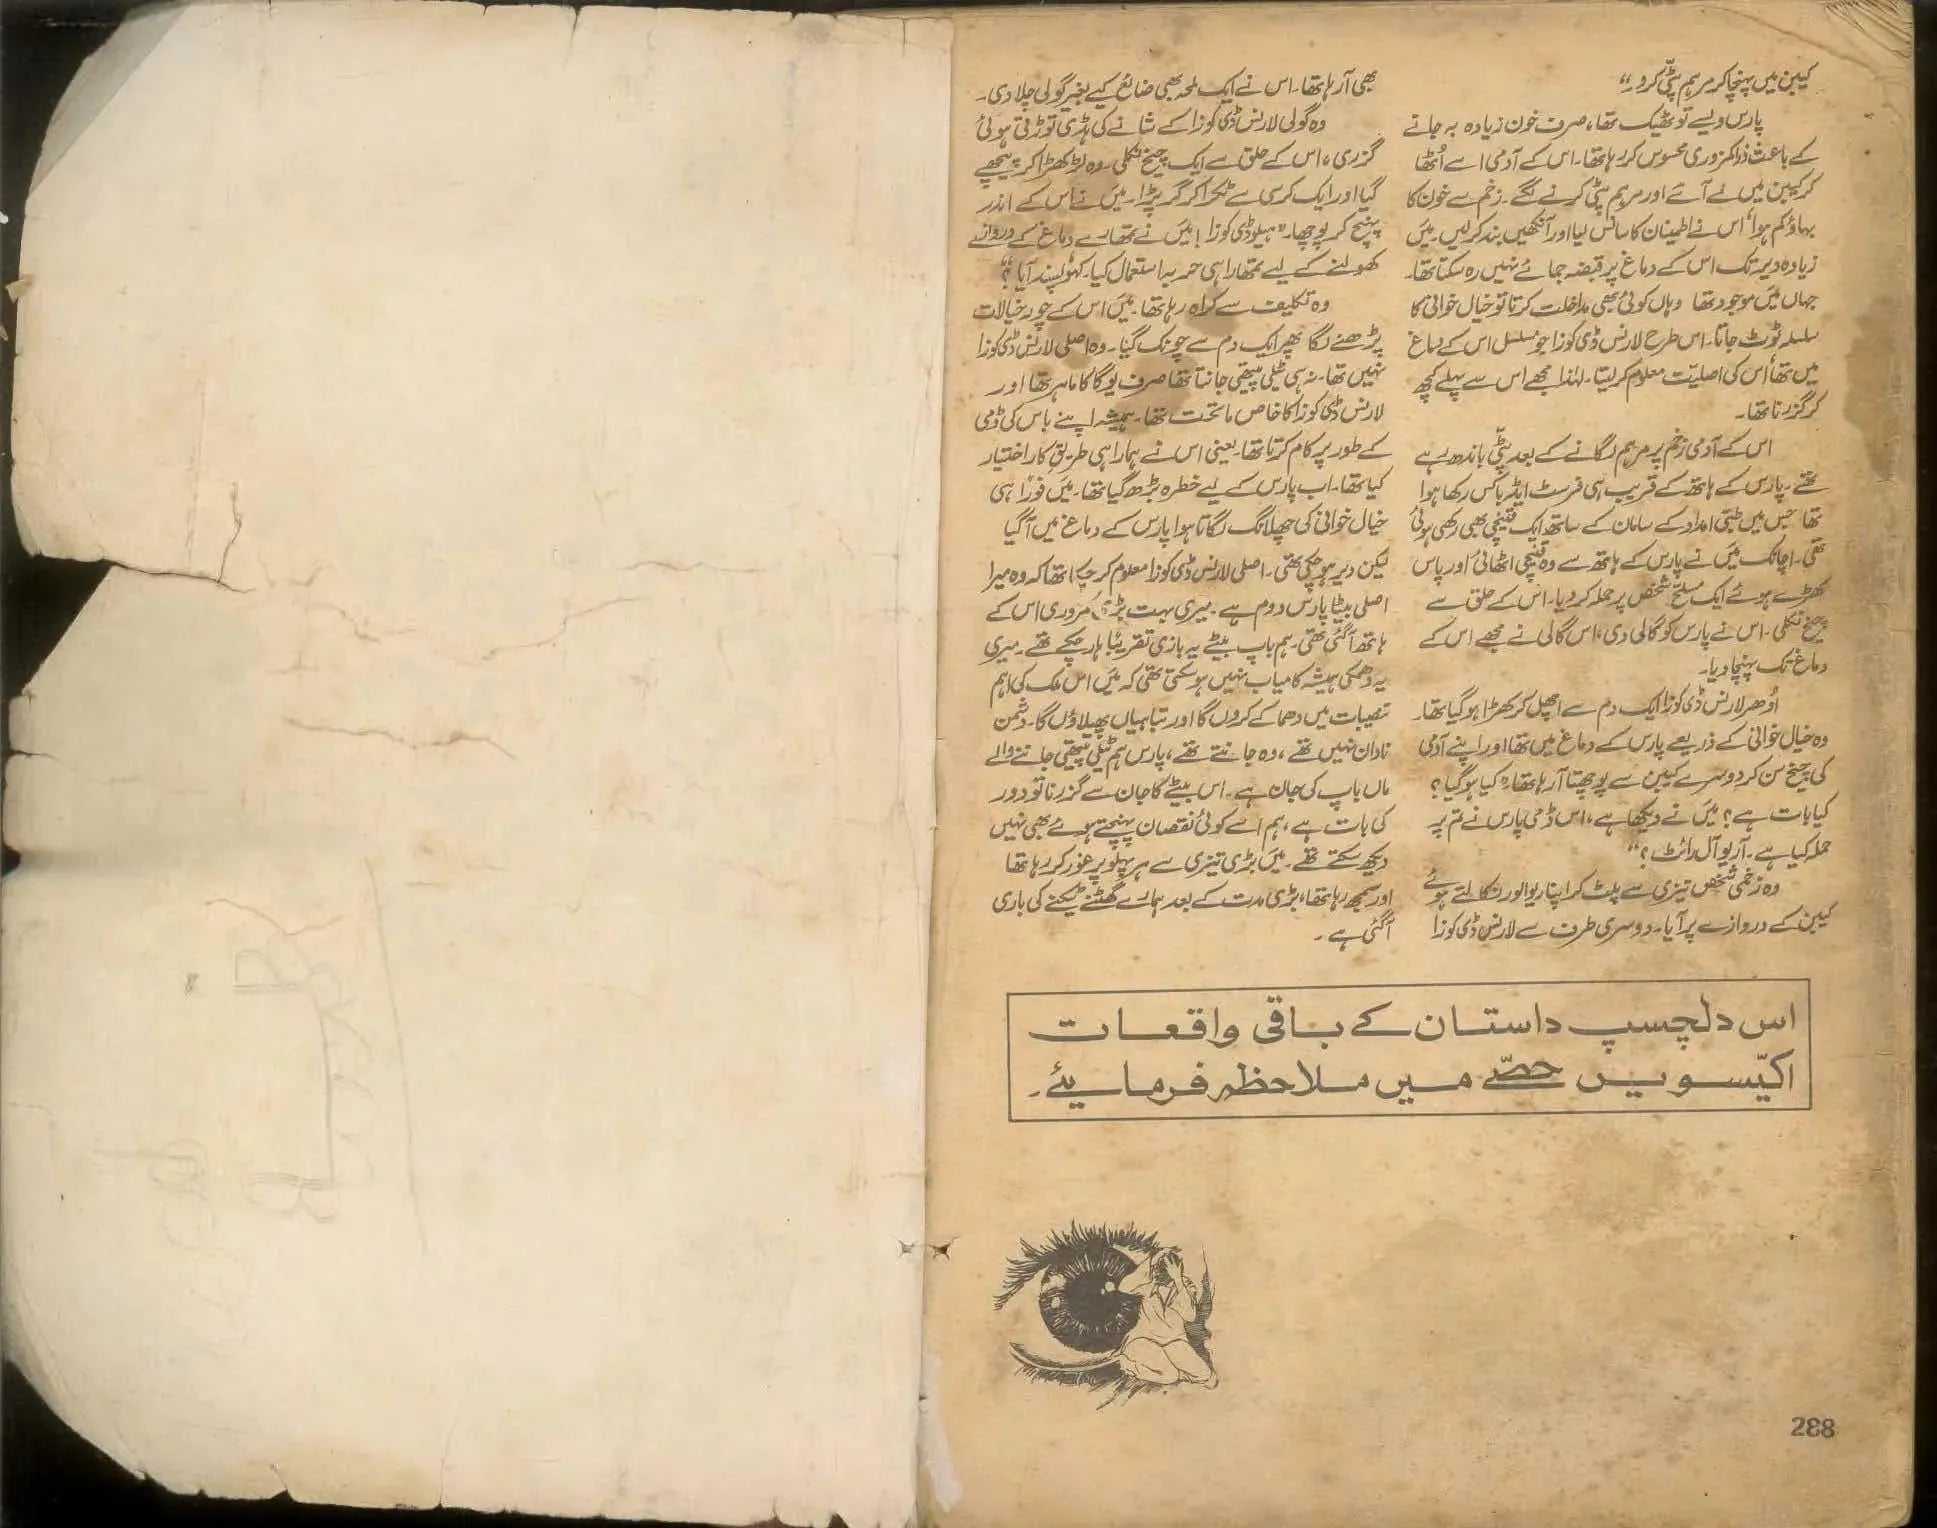 کیبن میں پہنچا کر مرہم پٹّی کرو۔"
پارس ویسے تو ٹھیک تھا، صرف خون زیادہ بہ جانے
کے باعث ذرا کمزوری محسوس کر رہا تھا۔ اس کے آدمی اسے اُٹھا
کر کیبن میں لے آئے اور مرہم پٹی کرنے لگے۔ زخم سے خون کا
بہاؤ کم ہوا' اس نے اطمینان کا سانس لیا اور آنکھیں بند کر لیں۔ میَں
زیادہ دیر تک اس کے دماغ پر قبضہ جمائے نہیں رہ سکتا تھا۔
جہاں میَں موجود تھا وہاں کوئی بھی مداخلت کرتا تو خیال خوانی کا
سلسلہ ٹوٹ جاتا۔ اس طرح لارنس ڈی کوزا جو مسلسل اس کے دماغ
میں تھا اُس کی اصلیّت معلوم کر لیتا۔ لہٰذا مجھے اس سے پہلے کچھ
کر گزرنا تھا۔
اس کے آدمی زخم پر مرہم لگانے کے بعد پٹّی باندھ رہے
تھے۔ پارس کے ہاتھ کے قریب ہی فرسٹ ایڈ باکس رکھا ہوا
تھا جس میں طبّی امداد کے سامان کے ساتھ ایک قینچی بھی رکھی ہوئی
تھی۔ اچانک میَں نے پارس کے ہاتھ سے وہ قینچی اٹھائی اور پاس
کھڑے ہوئے ایک مسلّح شخص پر حملہ کر دیا۔ اس کے حلق سے
چیخ نکلی۔ اس نے پارس کو گالی دی، اس گالی نے مجھے اس کے
دماغ تک پہنچا دیا۔
اُدھر لارنس ڈی کوزا ایک دم سے اچھل کر کھڑا ہو گیا تھا۔
وہ خیال خوانی کے ذریعے پارس کے دماغ میں تھا اور اپنے آدمی
کی چیخ سن کر دوسرے کیبن سے پوچھتا آ رہا تھا" کیا ہو گیا؟
کیا بات ہے؟ میَں نے دیکھا ہے، اس ڈمی پارس نے تم پر
حملہ کیا ہے۔ آر یو آل رائٹ؟"
وہ زخمی شخص تیزی سے پلٹ کر اپنا ریوالور نکالتے ہوئے
کیبن کے دروازے پر آیا۔ دوسری طرف سے لارنس ڈی کوزا
بھی آ رہا تھا۔ اس نے ایک لمحہ بھی ضائع کیے بغیر گولی چلا دی۔
وہ گولی لارنس ڈی کوزا کے شانے کی ہڈی توڑتی ہوئی
گزری، اس کے حلق سے ایک چیخ نکلی۔ وہ لڑکھڑا کر پیچھے
گیا اور ایک کرسی سے ٹکرا کر گر پڑا۔ میَں نے اس کے اندر
پہنچ کر پوچھا۔" ہیلو ڈی کوزا! میَں نے تمھارے دماغ کے دروازے
کھولنے کے لیے تمھارا ہی حربہ استعمال کیا۔ کہو' پسند آیا؟"
وہ تکلیف سے کراہ رہا تھا۔ میَں اس کے چور خیالات
پڑھنے لگا پھر ایک دم سے چونک گیا۔ وہ اصلی لارنس ڈی کوزا
نہیں تھا۔ نہ ہی ٹیلی پیتھی جانتا تھا صرف یوگا کا ماہر تھا اور
لارنس ڈی کوزا کا خاص ماتحت تھا۔ ہمیشہ اپنے باس کی ڈمی
کے طور پر کام کرتا تھا۔ یعنی اس نے ہمارا ہی طریقِ کار اختیار
کیا تھا۔ اب پارس کے لیے خطرہ بڑھ گیا تھا۔ میَں فوراً ہی
خیال خوانی کی چھلانگ لگاتا ہوا پارس کے دماغ میں آ گیا
لیکن دیر ہو چکی تھی۔ اصلی لارنس ڈی کوزا معلوم کر چکا تھا کہ وہ میرا
اصلی بیٹا پارس دوم ہے۔ میری بہت بڑی کمزوری اس کے
ہاتھ آ گئی تھی۔ ہم باپ بیٹے یہ بازی تقریباً ہار چکے تھے۔ میری
یہ دھمکی ہمیشہ کامیاب نہیں ہو سکتی تھی کہ میَں اس ملک کی اہم
تنصیبات میں دھماکے کروں گا اور تباہیاں پھیلاؤں گا۔ دشمن
نادان نہیں تھے، وہ جانتے تھے، پارس ہم ٹیلی پیتھی جاننے والے
ماں باپ کی جان ہے۔ اس بیٹے کا جان سے گزرنا تو دور
کی بات ہے، ہم اسے کوئی نقصان پہنچتے ہوئے بھی نہیں
دیکھ سکتے تھے۔ میَں بڑی تیزی سے ہر پہلو پر غور کر رہا تھا
اور سمجھ رہا تھا، بڑی مدت کے بعد ہمارے گھٹنے ٹیکنے کی باری
آ گئی ہے۔
اس دلچسپ داستان کے باقی واقعات
اکیّسویں حصّے میں ملاحظہ فرمایئے۔
288